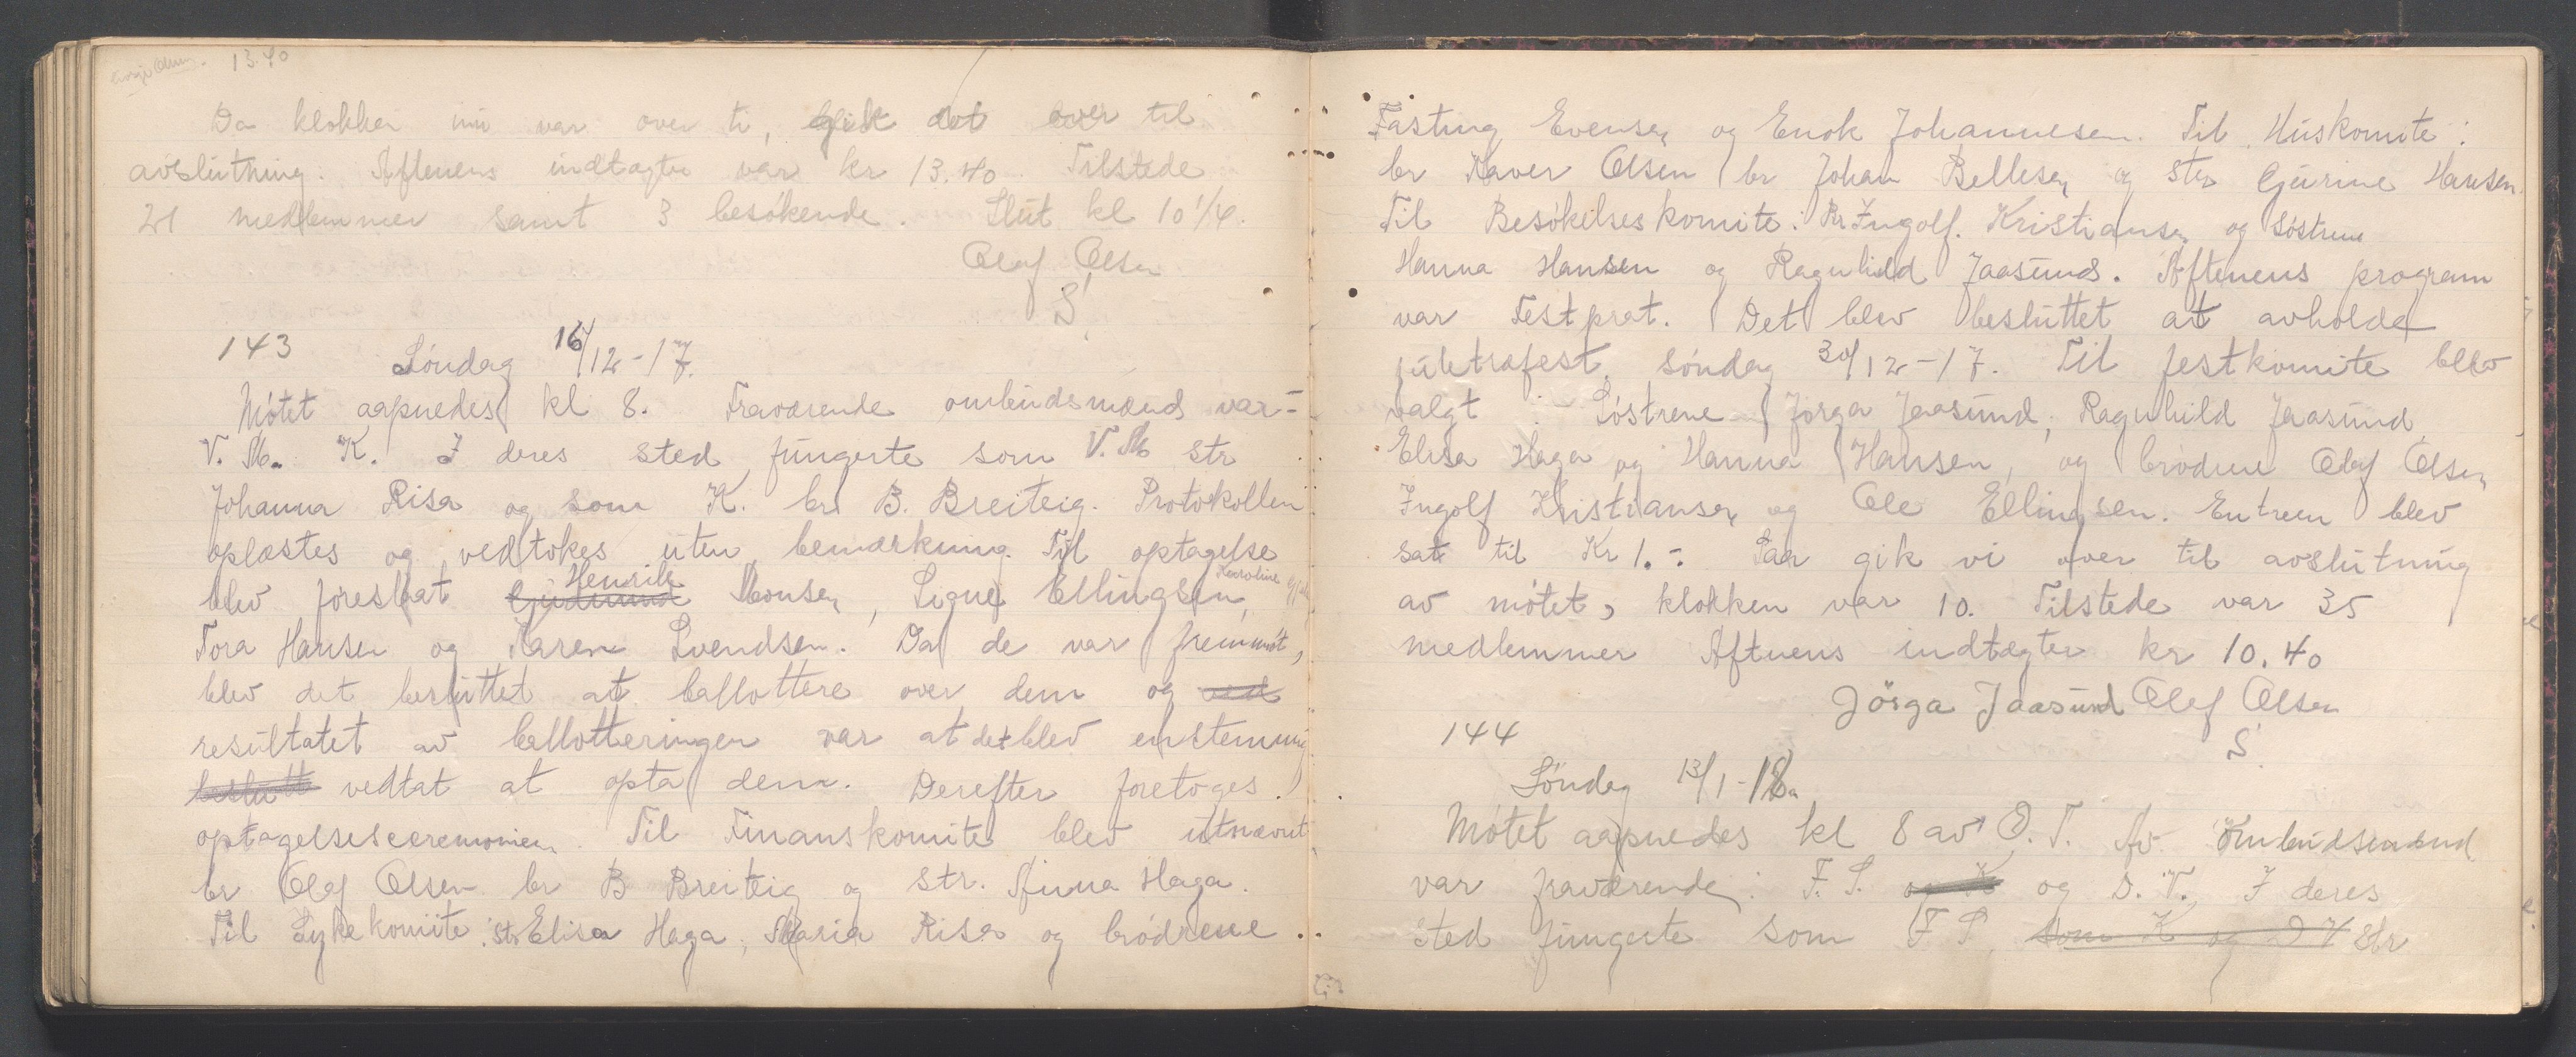 13.40
Da klokken nu var over ti, gik det over til
avslutning. Aftenens indtægter var kr 13.40. Tilstede
21 medlemmer samt 3 besøkende. Slut kl 10 1/4.
Olaf Olsen
S.
143
Søndag 16/12-17.
Møtet aapnedes kl 8. Fraværende ombudsmænds var:-
V. M. K. I deres sted fungerte som V. M str
Johanna Risa og som K. br B. Breiteig. Protokollen
oplæstes og vedtokes uten bemærkning. Til optagelse
Henrik Karoline
blev foreslaat Gudmund Monsen, Signe Ellingsen,
Tora Hansen og Karen Svendsen. Da de var fremmøt,
blev det besluttet at ballottere over dem og ved
resultatet av ballotteringen var at det blev enstemmig
beslutt vedtat at opta dem. Derefter foretoges
optagelsesceremonien. Til Finanskomite blev utnævnt
br Olaf Olsen br B Breiteig og str. Anna Haga.
Til Sykekomite: str Elisa Haga, Maria Risa og brødrene
Fasting Evensen og Enok Johannesen. Til Huskomite:
br Xaver Olsen br Johan Bellesen og str Gurine Hansen.
Til Besøkelseskomite: Br Ingolf. Kristiansen og søstrene
Hanna Hansen og Ragnhild Jaasund. Aftenens program
var Festprat. Det blev besluttet at avholde
juletrafest søndag 30/12-17. Til festkomite blev
valgt Søstrene Jørga Jaasund, Ragnhild Jaasund,
Elisa Haga og Hanna Hansen, og brødrene Olaf Olsen
Ingolf Kristiansen og Ole Ellingsen. Entreen blev
sat til Kr 1.- Saa gik vi over til avslutning
av møtet, klokken var 10. Tilstede var 35
medlemmer Aftnens indtægter kr 10.40
Jörga Jaasund Olaf Olsen
S.
144
Søndag 13/1-18.
Møtet aapnedes kl 8 av O. T. Av Ombudsmænd
var fraværende: F. S. og K og D. V. I deres
sted fungerte som F S. som K og D V str